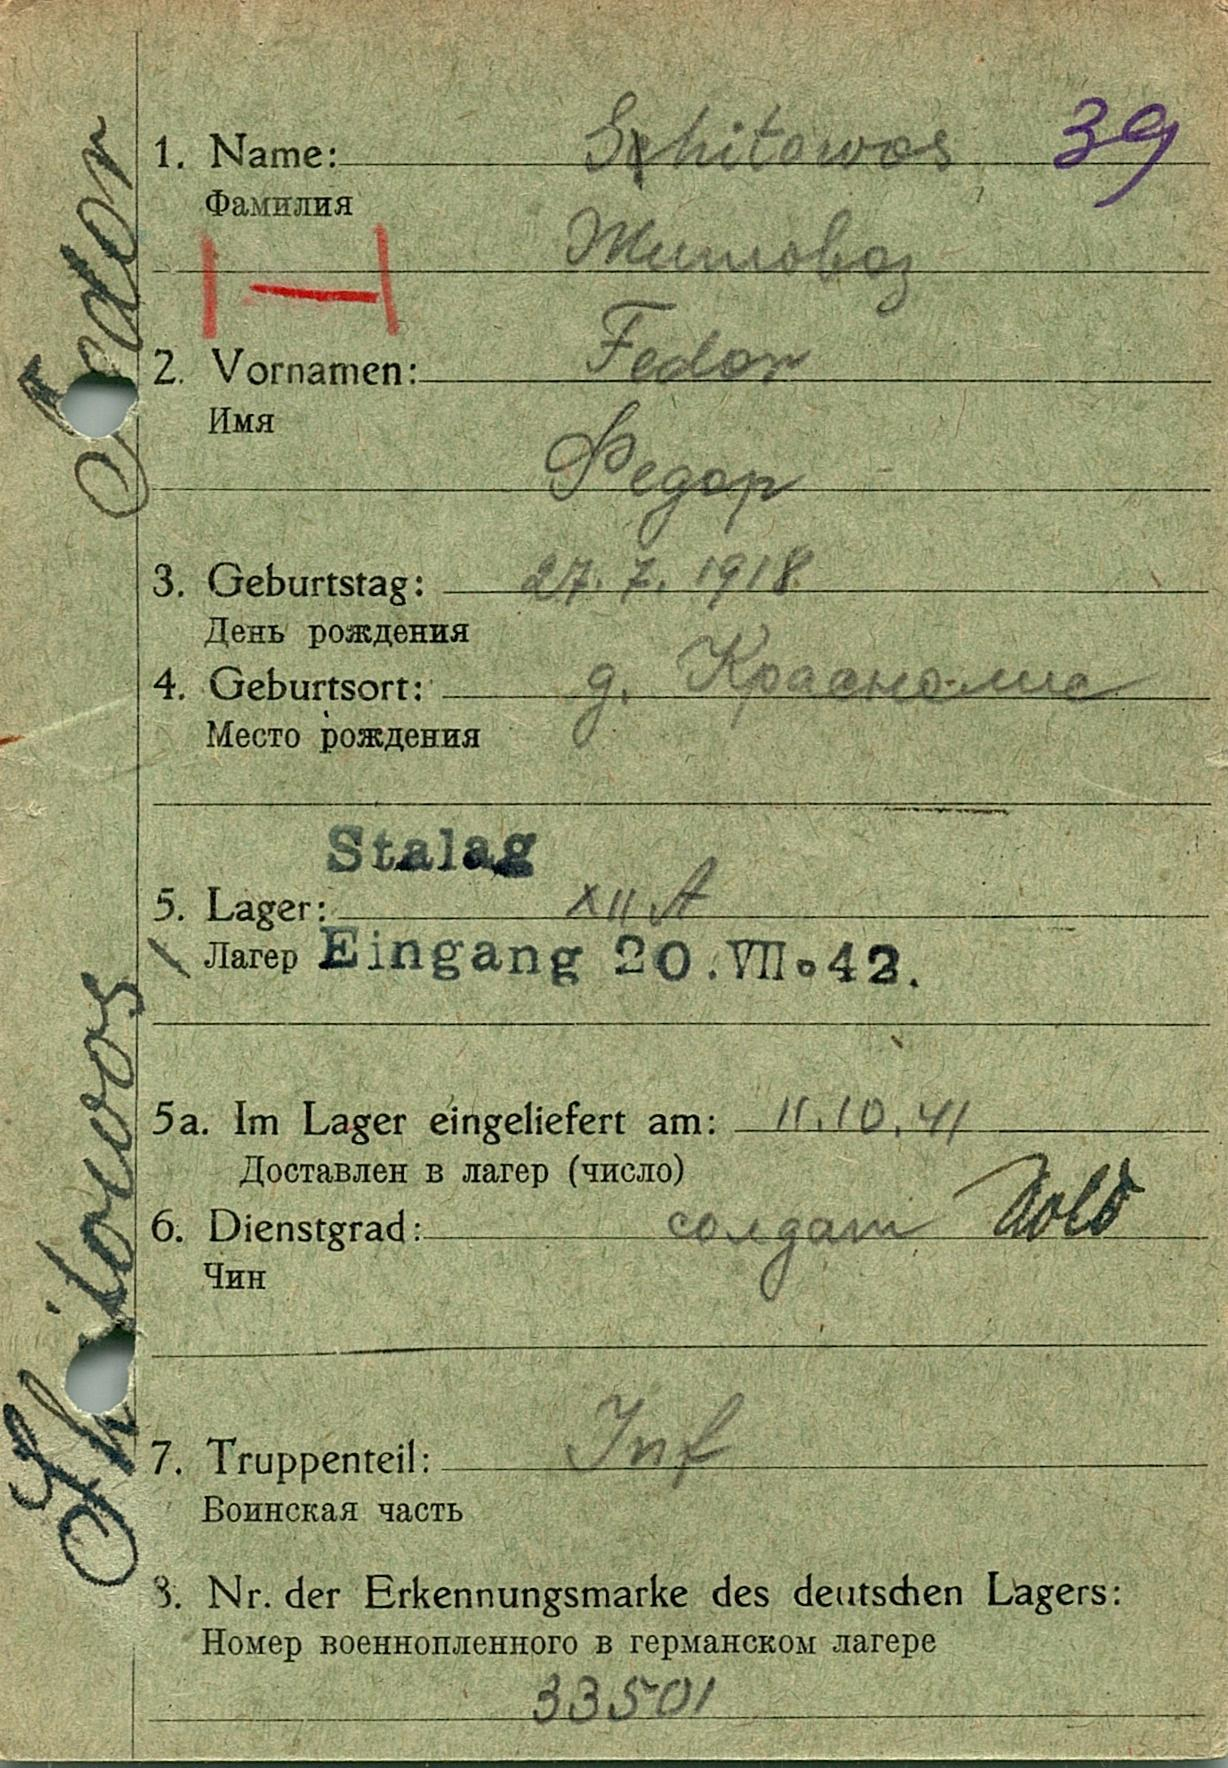 39
1. Name: Schitowos
Фамилия
Житовоз
2. Vornamen: Fedor
Имя
Федор
3. Geburtstag: 27. 7. 1918
День рождения
4. Geburtsort: д. Краснолис
Место рождения
Stalag
5. Lager: XII A
Лагер Eingang 20.VII.42.
5a. Im Lager eingeliefert am: 11.10.41
Доставлен в лагер (число)
6. Dienstgrad: солдат Sold
Чин
7. Truppenteil: Inf
Воинская часть
8. Nr. der Erkennungsmarke des deutschen Lagers:
Номер военнопленного в германском лагере
33501
Shitowos Fedor